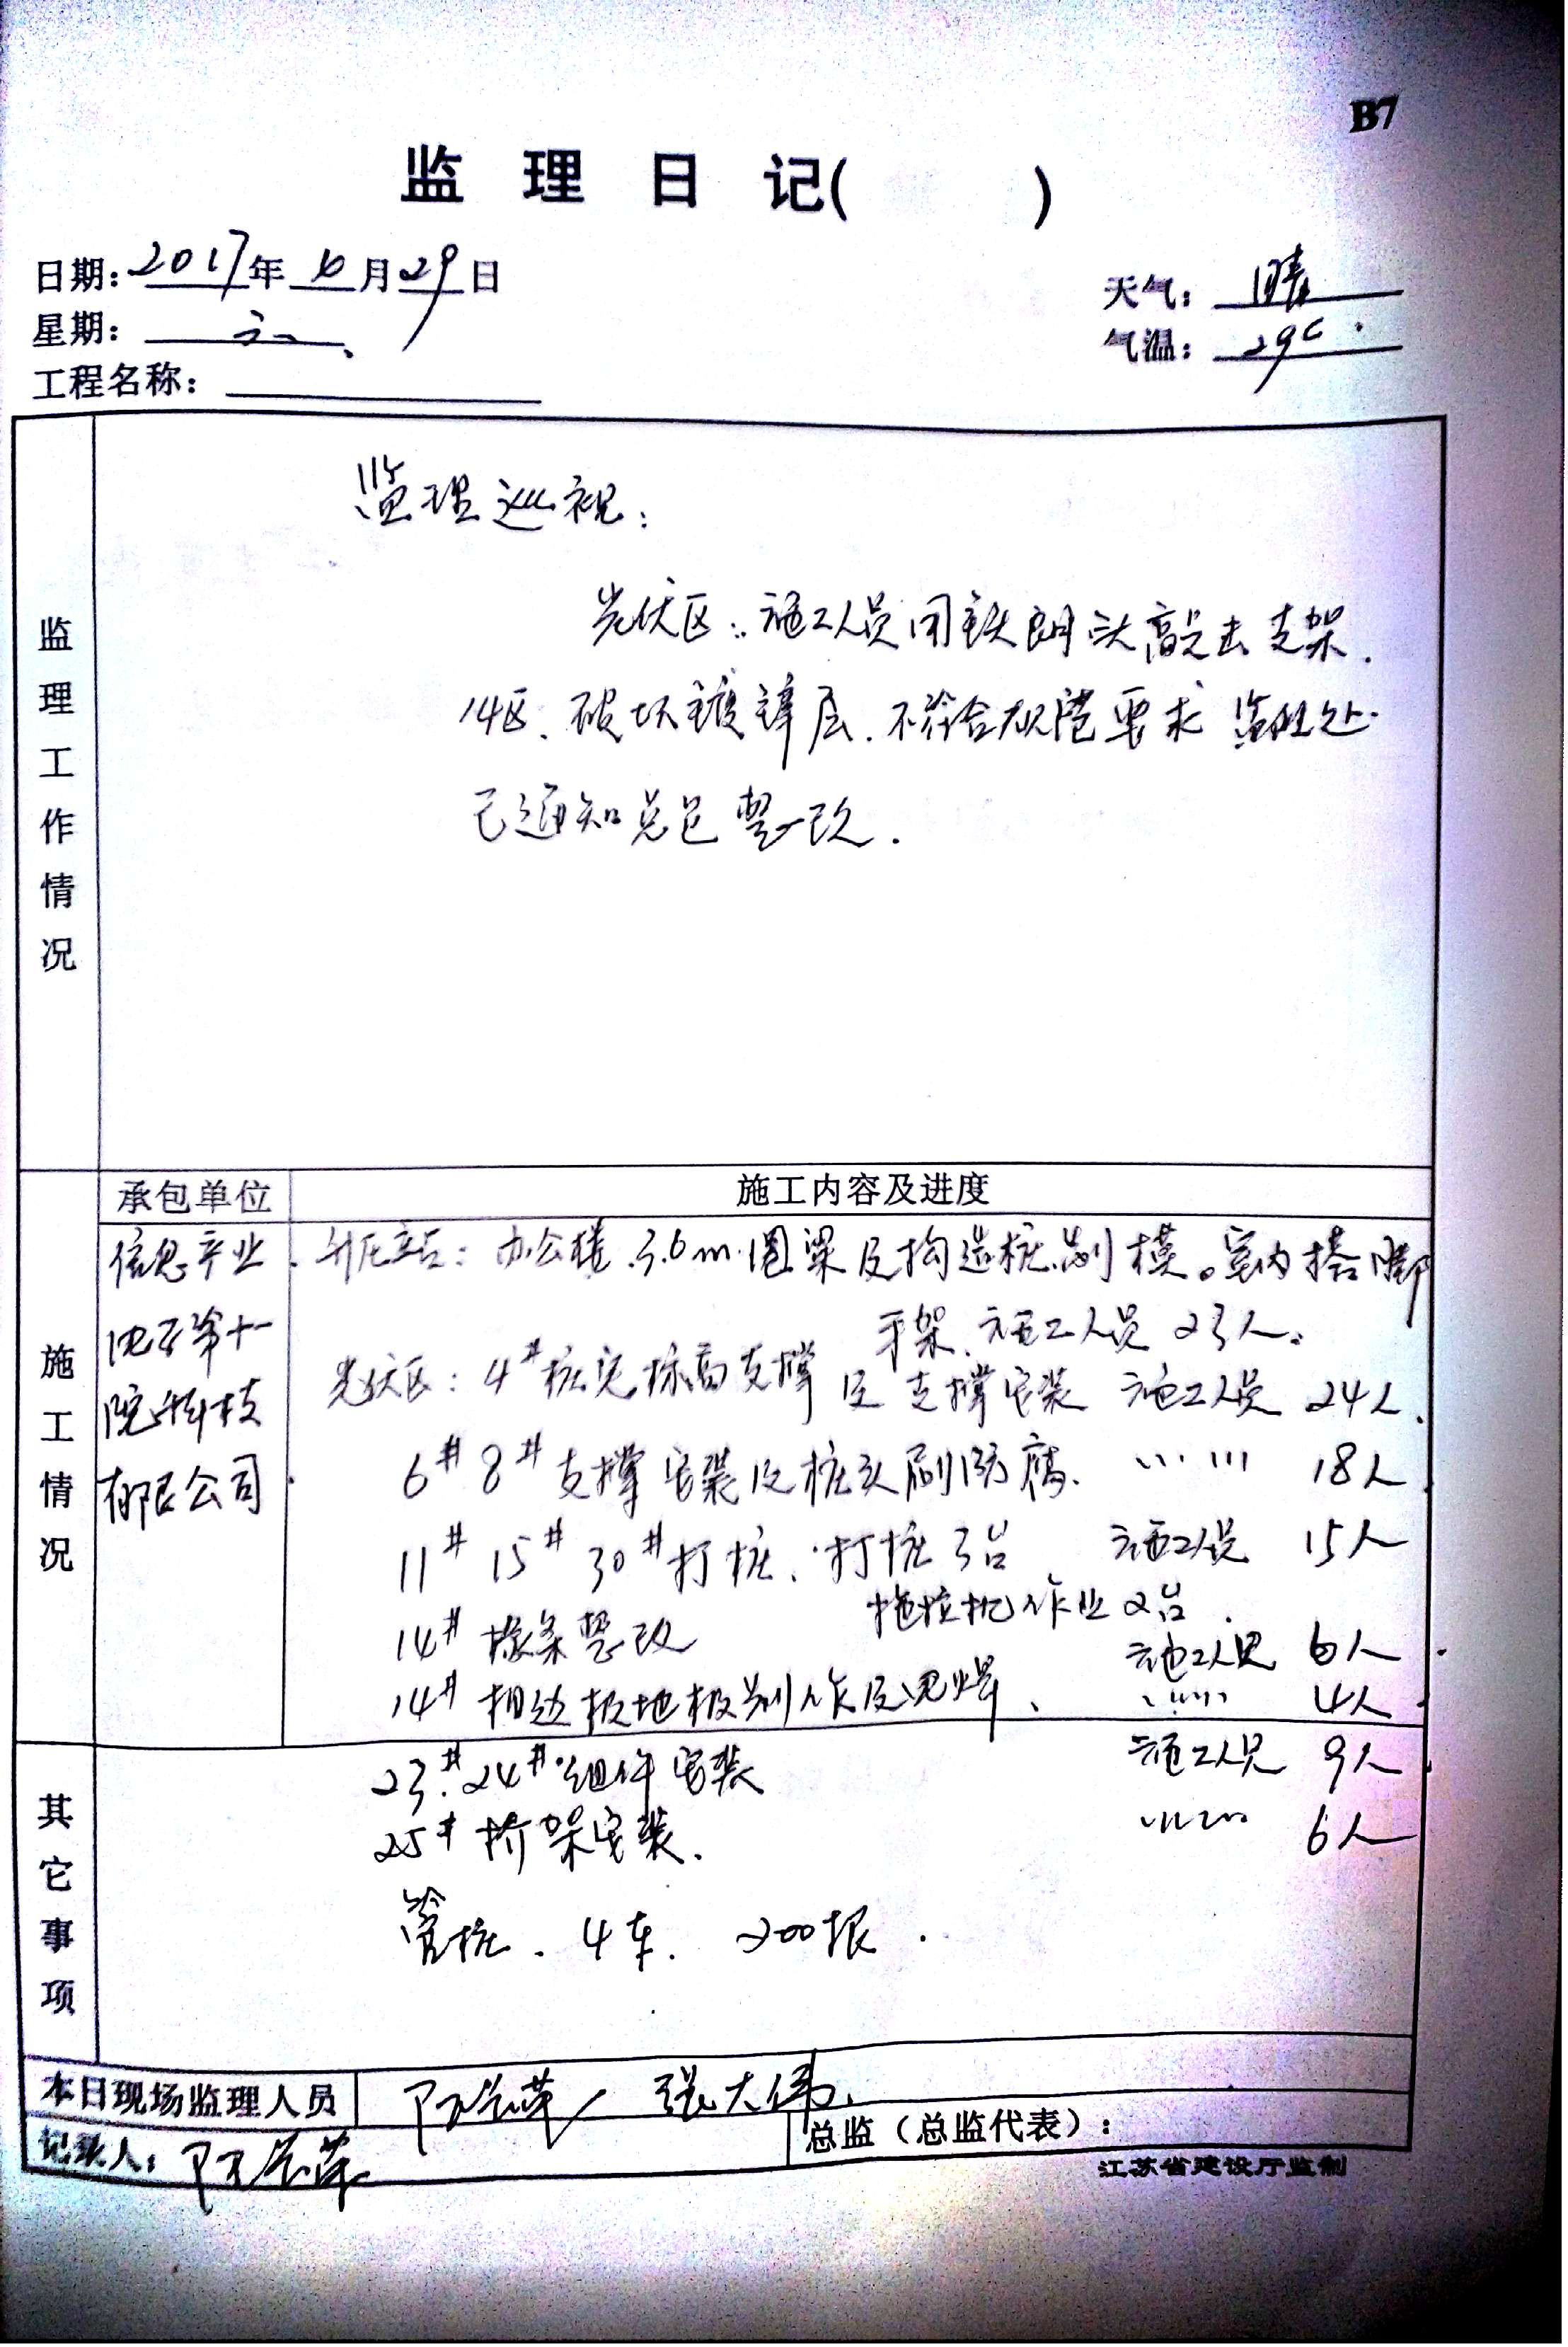 B7
监理日记( )
日期：2017年 月29日
天气：晴
星期：
气温：29C
工程名称：
监理工作情况
监理巡视：
光伏区：施工人员用铁榔头敲击支架.
14区、破坏镀锌层.不符合规范要求 监理处
已通知总包整改.
施工情况
承包单位
施工内容及进度
信息产业
电子第十一
院科技
有限公司
升压站：办公楼3.6m圈梁及构造柱制模。室内搭脚
手架、施工人员 23人。
光伏区：4#桩 标高支撑及支撑安装 施工人员 24人.
6# 8# 支撑安装及桩头刷防腐. 18人
11# 15# 30# 打桩、打桩3台 施工人员 15人
拖拉机作业2台.
14# 檩条整改 施工人员 6人
14# 接地极制作及 焊、 4人
其它事项
23# 24# 组件安装 施工人员 9人
25# 桥架安装. 6人
管桩. 4车. 200根.
本日现场监理人员
张大伟
记录人：
总监（总监代表）：
江苏省建设厅监制